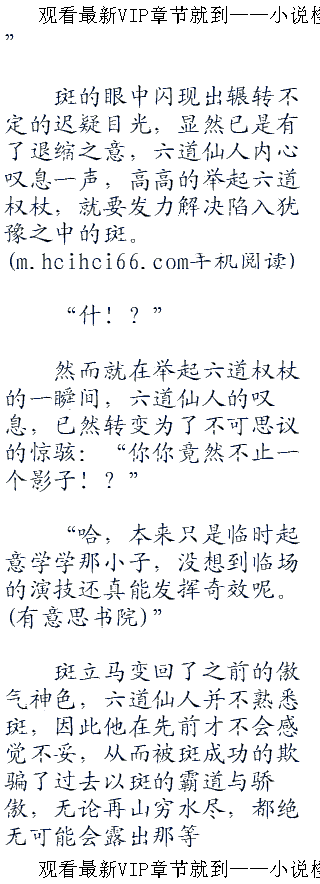 观看最新VIP章节就到——小说
”
斑的眼中闪现出辗转不
定的迟疑目光，显然已是有
了退缩之意，六道仙人内心
叹息一声，高高的举起六道
权杖，就要发力解决陷入犹
豫之中的斑。
(m.hcihci66.com手机阅读)
“什！？”
然而就在举起六道权杖
的一瞬间，六道仙人的叹
息，已然转变为了不可思议
的惊骇：“你你竟然不止一
个影子！？”
“哈，本来只是临时起
意学学那小子，没想到临场
的演技还真能发挥奇效呢。
(有意思书院)”
斑立马变回了之前的傲
气神色，六道仙人并不熟悉
斑，因此他在先前才不会感
觉不妥，从而被斑成功的欺
骗了过去以斑的霸道与骄
傲，无论再山穷水尽，都绝
无可能会露出那等
观看最新VIP章节就到——小说